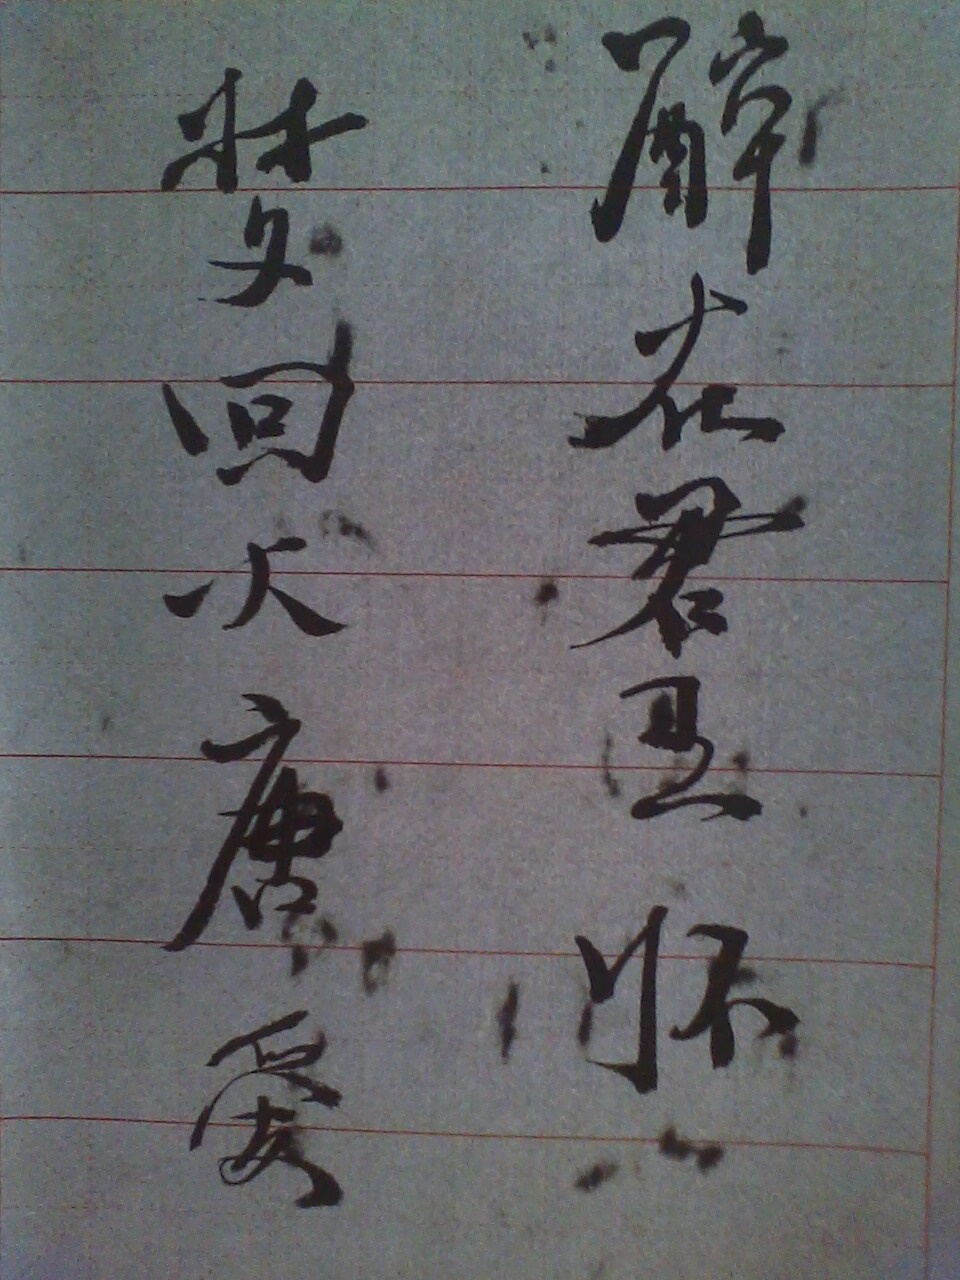 醉在君王怀
梦回大唐爱